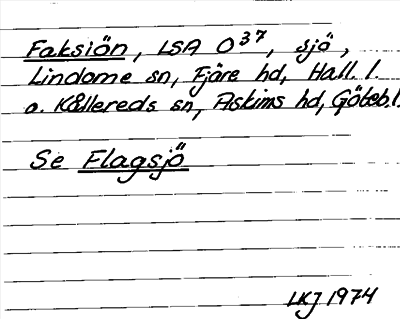 Faksiön, LSA O37, sjö,
Lindome sn, Fjäre hd, Hall. l.
o. Kållereds sn, Askims hd, Göteb.l.
Se Flagsjö
LKJ 1974